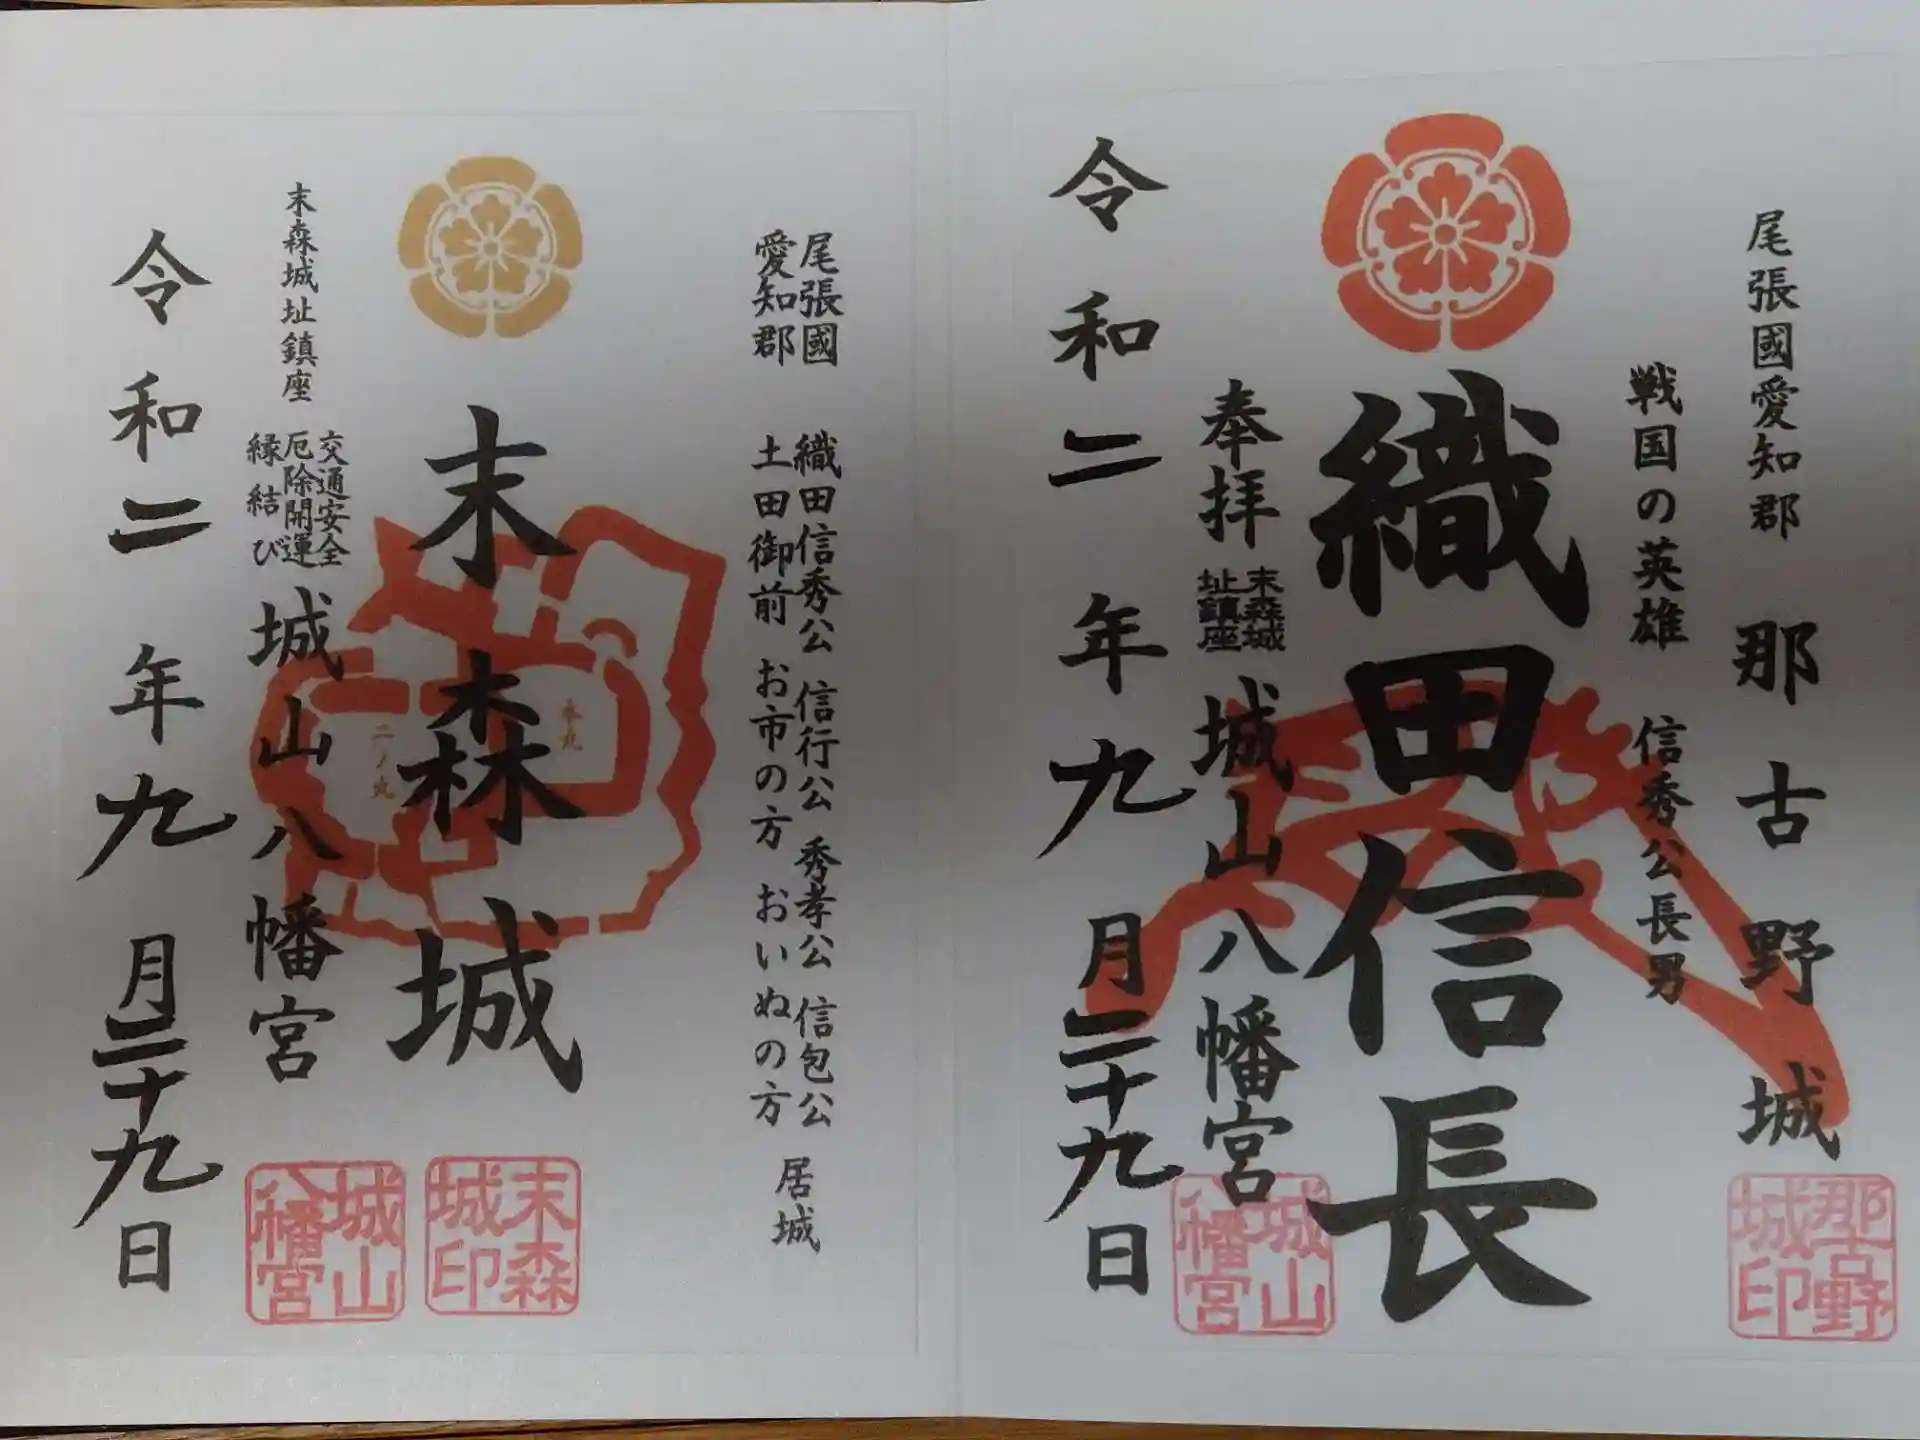 尾張國愛知郡 那古野城
戦国の英雄 信秀公長男
織田信長
奉拝 末森城址鎮座 城山八幡宮
令和二年九月二十九日
那古野城印
城山八幡宮
尾張國愛知郡
織田信秀公 信行公 秀孝公 信包公
土田御前 お市の方 おいぬの方
居城
末森城
本丸
二ノ丸
末森城址鎮座
交通安全
厄除開運
縁結び
城山八幡宮
令和二年九月二十九日
末森城印
城山八幡宮